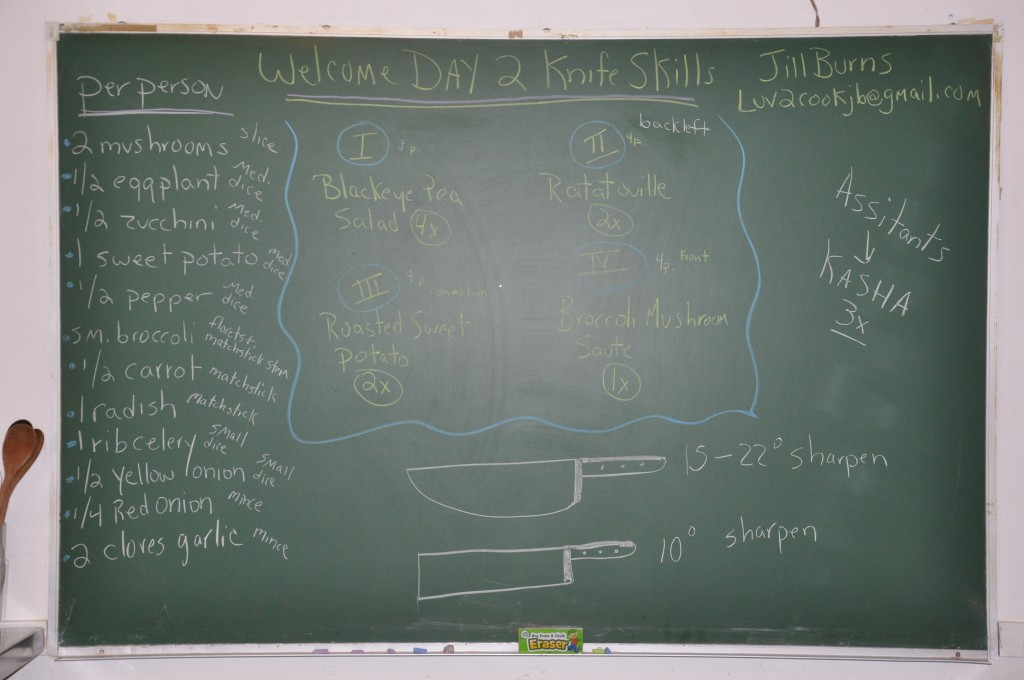 Welcome DAY 2 Knife Skills
Jill Burns
Luv2cookjb@gmail.com
Per person
2 mushrooms slice
1/2 eqqplant Med. dice
1/2 zucchini Med. dice
1 sweet potato med dice
1/2 pepper Med. dice
sm. broccoli florets + matchstick stem
1/2 carrot matchstick
1 radish Matchstick
1 rib celery small dice
1/2 yellow onion small dice
1/4 Red onion mince
2 cloves garlic mince
I
Blackeye Pea
Salad 4x
back left
II 4p.
Ratatouille
2x
III 4p. convection
Roasted Sweet
Potato
2x
IV 4p. Front
Broccoli Mushroom
Saute
1x
Assitants
KASHA
3x
15-22° sharpen
10° sharpen
Eraser